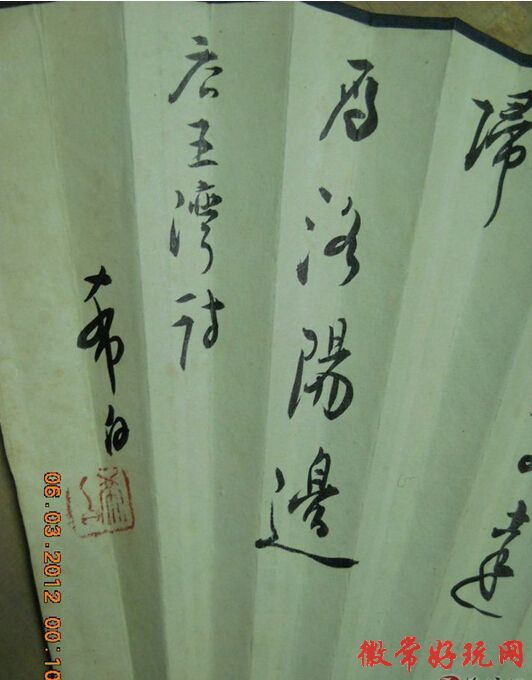 達
歸
雁洛陽邊
唐王灣詩
希白
06.03.2012 00:10
徽常好玩网